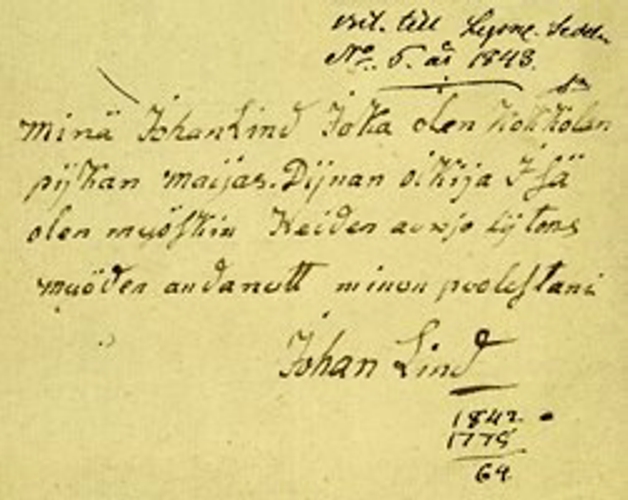 till Lysne. Sedeln
No. 5. år 1843.
minä Johan Lind Joka olen Kokkolan
pijkan maijas. Dijnan oikija Isä
olen muöskin Heiden
muöden andanutt minun poolestani
Johan Lind
1842.
1778
64